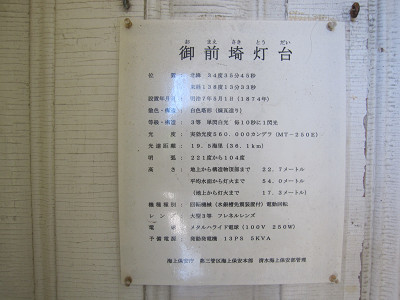 お まえ さき とう だい
御前埼灯台
位 置 北緯 34度35分45秒
東経 138度13分33秒
設置年月日 明治7年5月1日(1874年)
塗色・構造 白色塔形(煉瓦造り)
等級・構造 3等 単閃白光 毎10秒に1閃光
光 度 実効光度560,000カンデラ(MT-250E)
光達距離 19.5海里(36.1km)
明 弧 221度から104度
高 さ 地上から構造物頂部まで 22.7メートル
平均水面から灯火まで 54.0メートル
(地上から灯火まで 17.3メートル)
機種種別 回転機械(水銀槽免震装置付)電動回転
レンズ 大型3等 フレネルレンズ
電 球 メタルハライド電球(100V 250W)
予備電源 発動発電機 13PS 5KVA
海上保安庁 第三管区海上保安本部 清水海上保安部管理